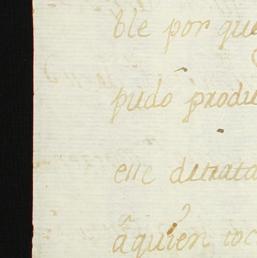 ble por que
pudó produ
elle detrata
â quien toc